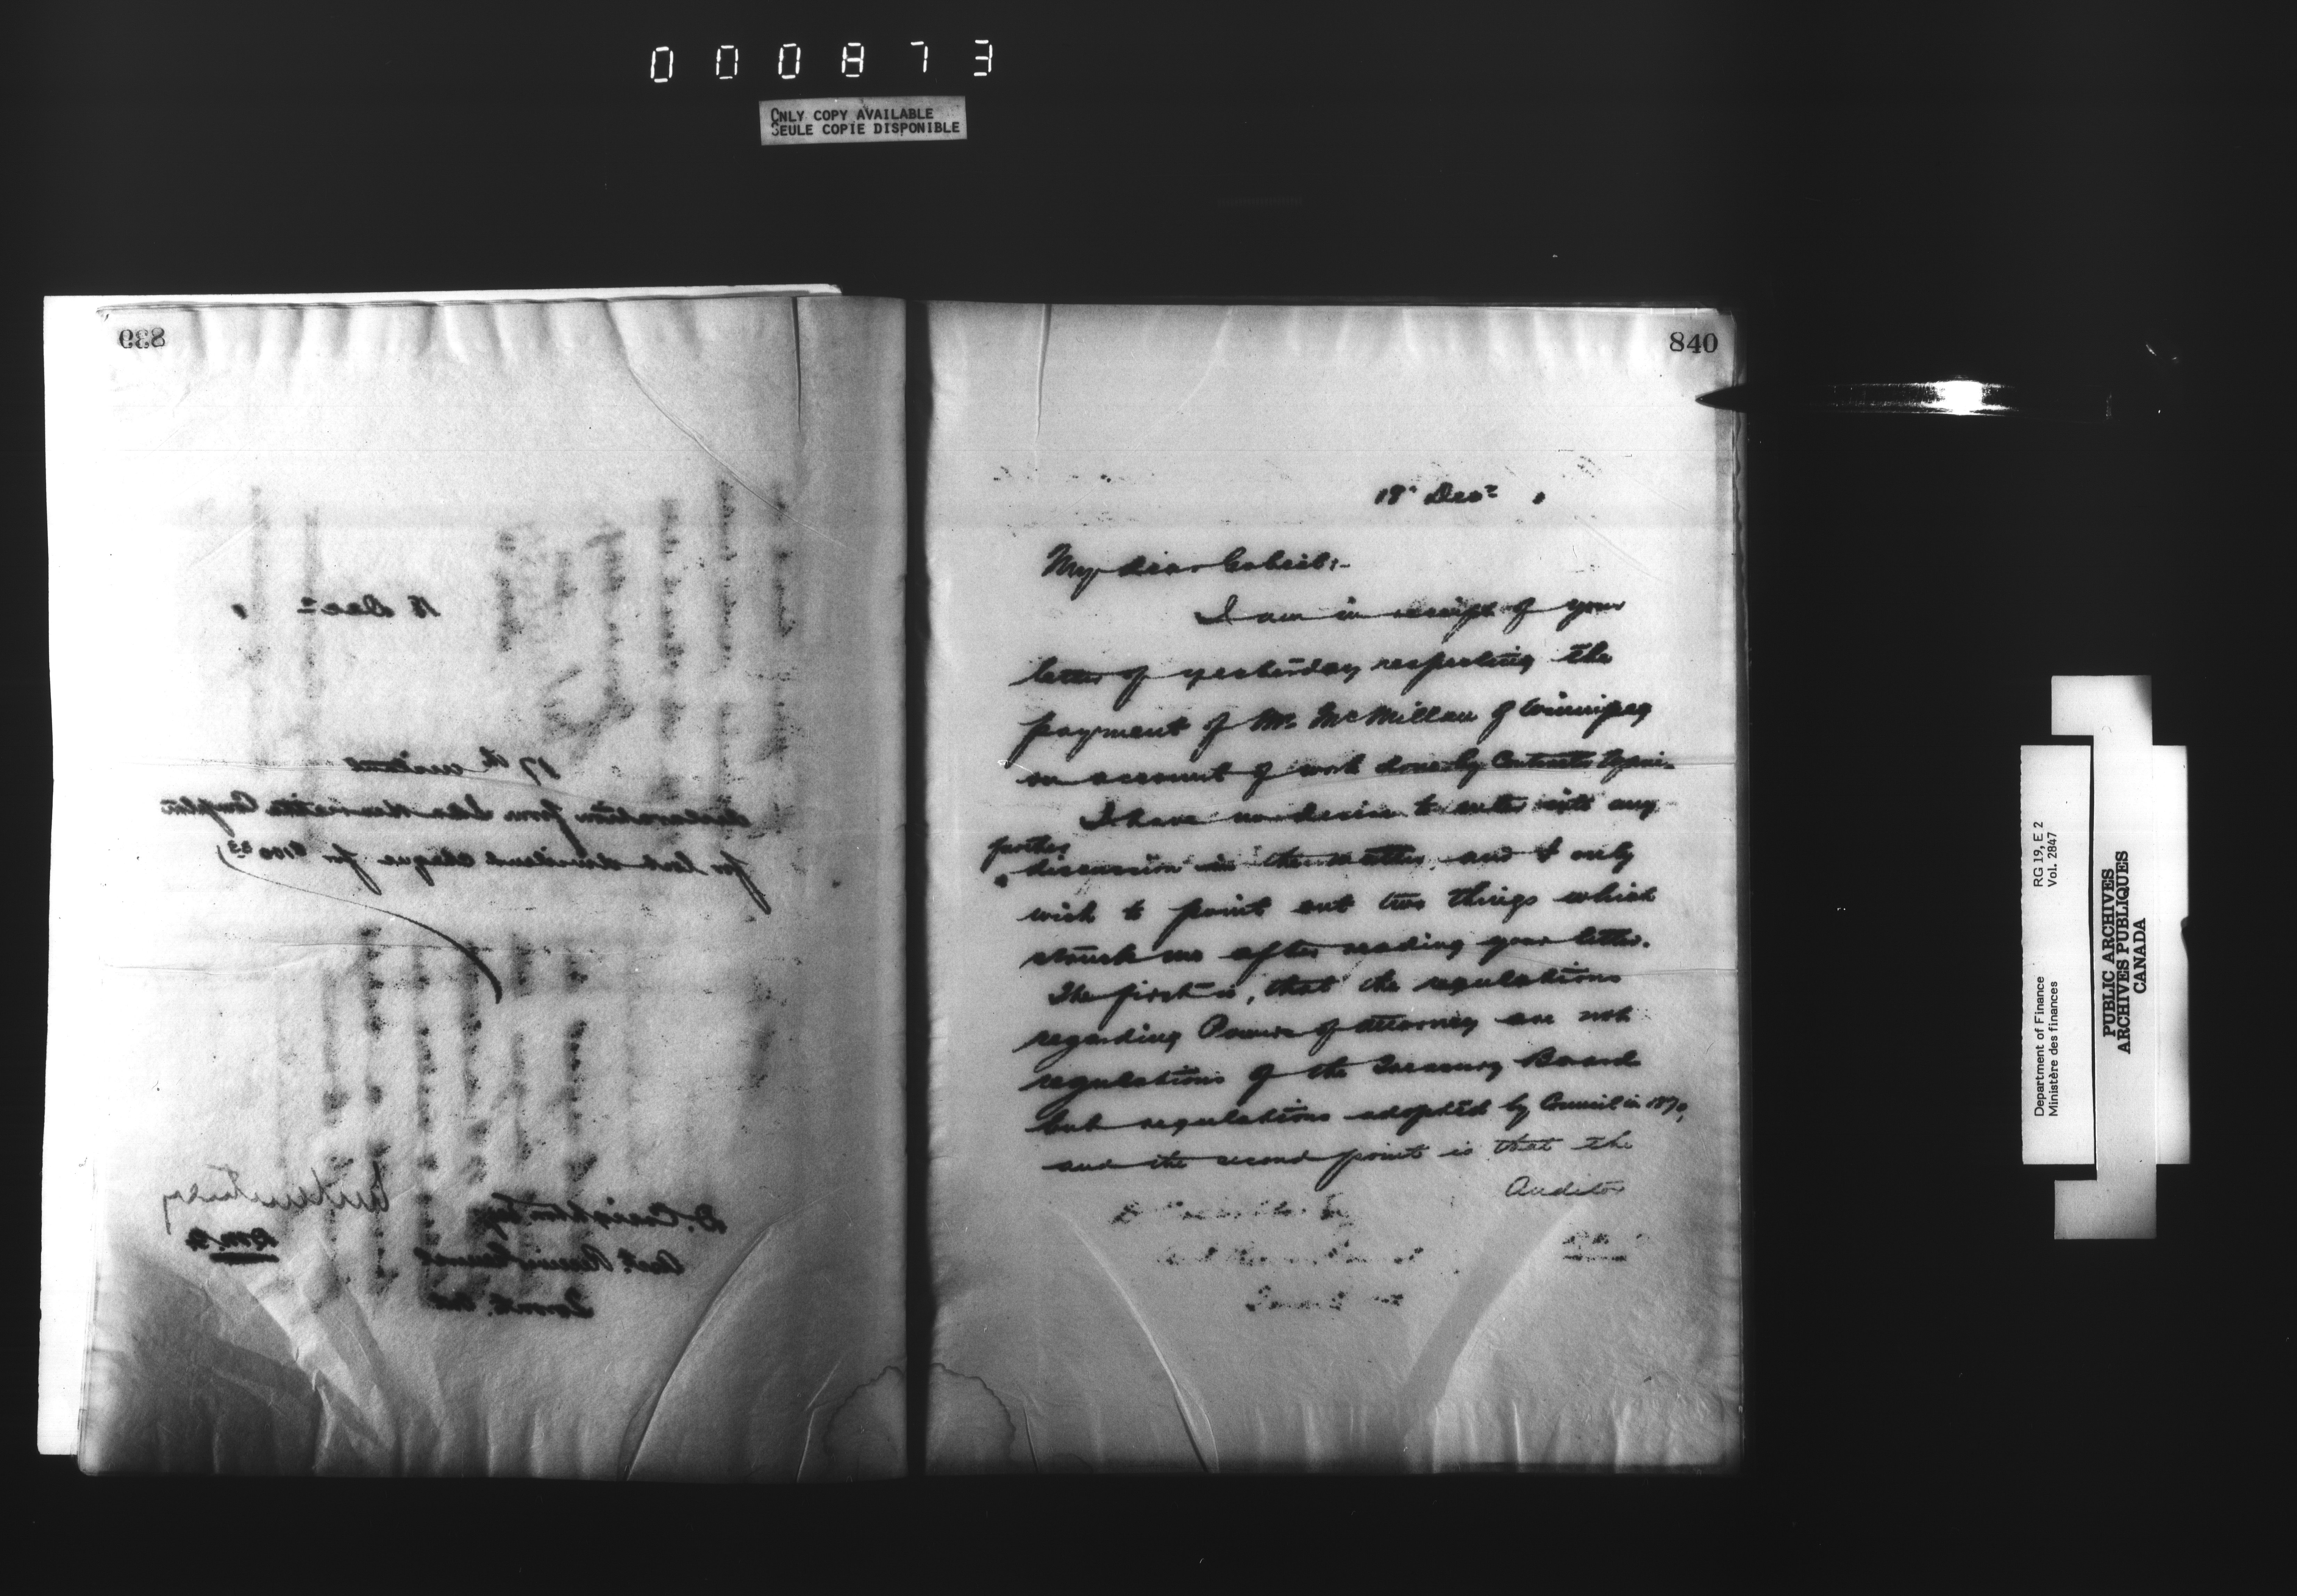 000873
ONLY COPY AVAILABLE
SEULE COPIE DISPONIBLE
839
18 Decr
17th instant
declaration from
for lost dividend cheque for
D. Creighton Esq
Asst. Receiver General
Toronto. Ont
D.M.F.
840
18th Decr
My dear
I am in receipt of your
letter of yesterday respecting the
payment of Mr. McMillan of Winnipeg
on account of work done by
I have no desire to enter into any
further
discussion in the matter and I only
wish to point out two things which
struck me after reading your letter.
The first is, that the regulations
regarding Powers of Attorney are not
regulations of the Treasury Board
but regulations adopted by Council in 1870,
and the second point is that the
Auditor
Department of Finance
Ministère des finances
RG 19, E 2
Vol. 2847
PUBLIC ARCHIVES
ARCHIVES PUBLIQUES
CANADA